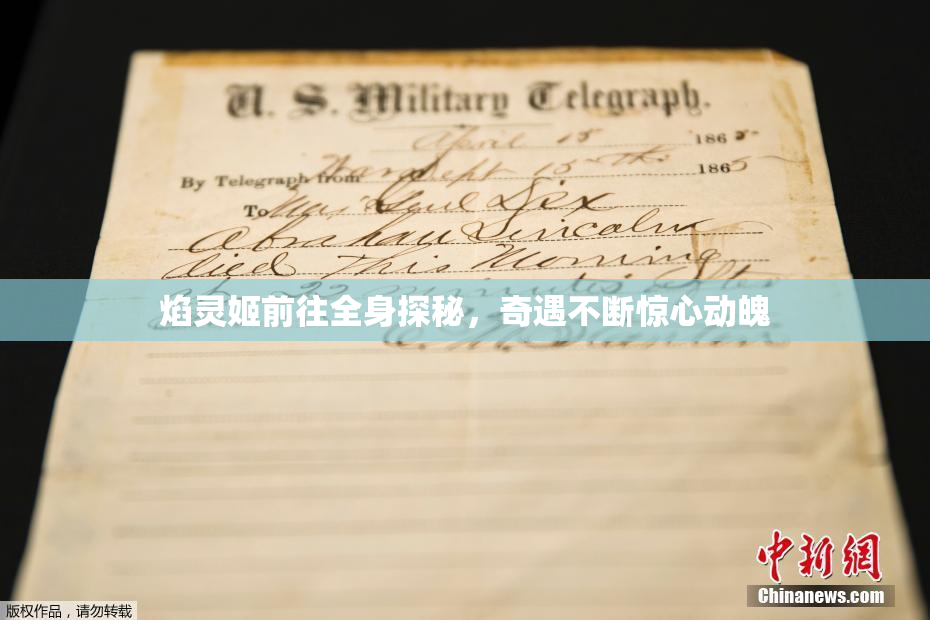 U. S. Military Telegraph.
April 15 1865
By Telegraph from War Dept 15th 1865
To Maj Genl Dix
Abraham Lincoln
died This Morning
at 22 minutes after
焰灵姬前往全身探秘，奇遇不断惊心动魄
E. M. Stanton
中新网
Chinanews.com
版权作品，请勿转载